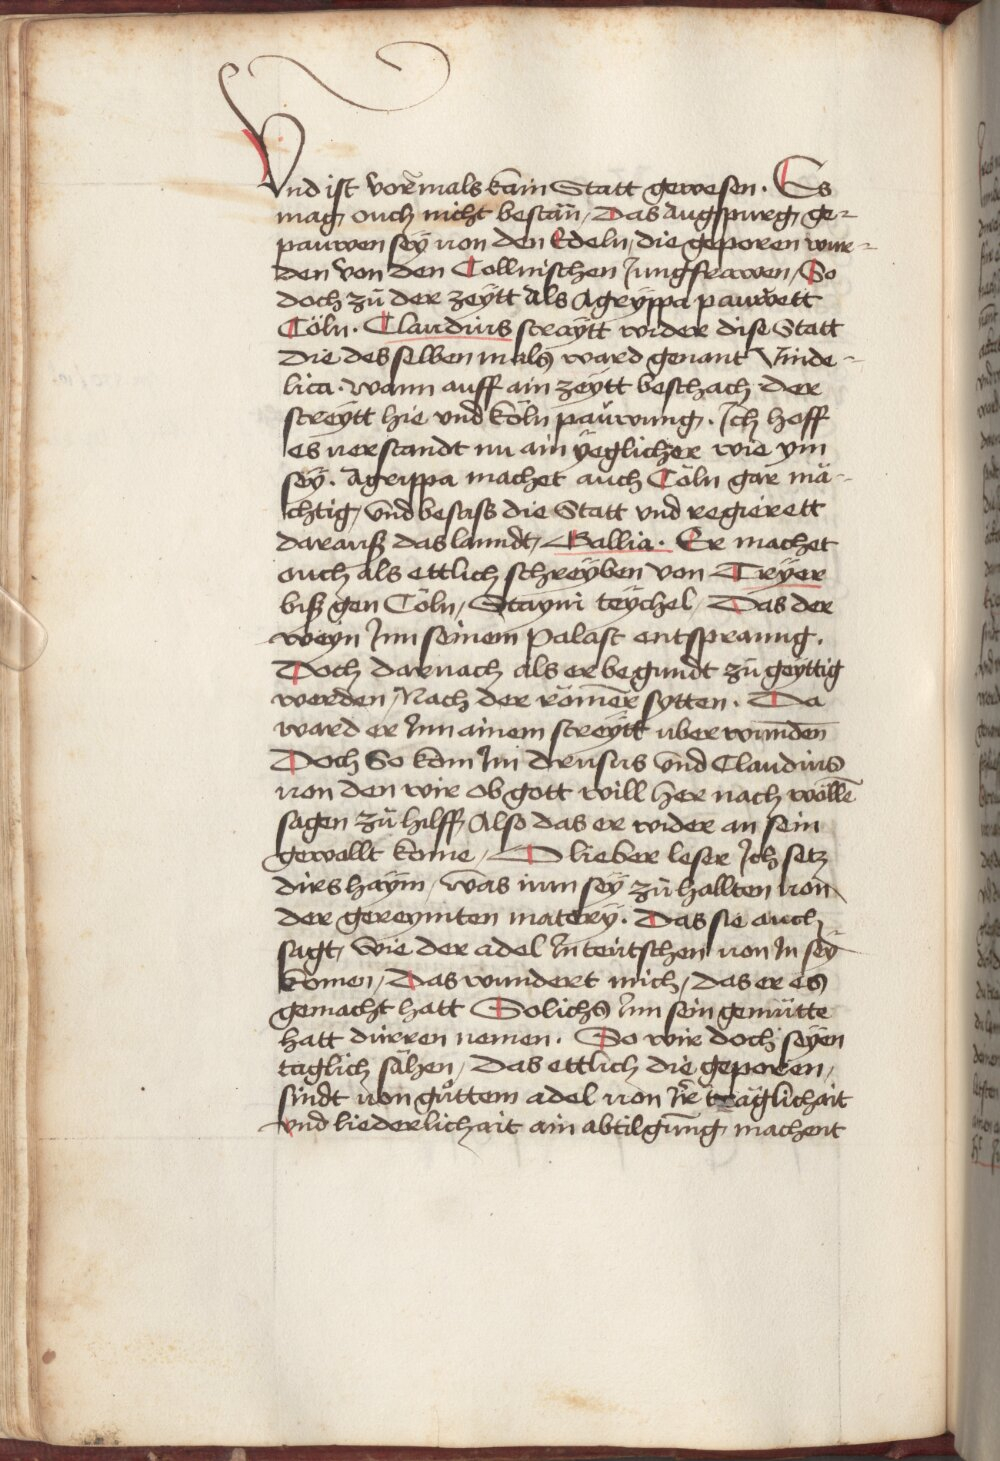 Vnd ist vormals kain Statt gewesen. Es
mag ouch nicht bestān / Das Augspurg ge-
pauwen sey von den Edeln / die geporen wur-
den von den Collnischen Jungfrawen / So
doch zů der zeytt Als Agryppa pauwett
Cöln. Claudius straytt wider dise Statt
die desselben mals ward genant Vinde-
lica. wann auff ain zeytt beschach der
streytt hie vnd Köln paūwung. Ich hoff
es verstandt nu ain yeglicher wie ym
sey. Agrippa machet auch Cöln gar mä-
chtig / vnd besass die Statt vnd regierett
darauß das lanndt / Gallia. Er machet
ouch als ettlich schreyben von Tryer
biß gen Cöln / Stayni teychel / Das der
weyn Inn seinem Palast entsprang.
Doch darnach als er begundt zů geyttig
werden / Nach der römer sytten. Da
ward er Inn ainem streytt uberwunden
Doch So kom Im drusus vnd Claudius
von den wir ob gott will her nach wöllē
sagen zů hilff Also das er wider an sein
gewallt kome / O lieber leser Ich setz
dirs haym / was nun sey zů hallten von
der gereymten matery. Das sie auch
sagt / wie der adel In teutschen von In sey
komen / Das wundert mich / das er es
gemacht hatt Solichs Inn sein gemütte
hatt dürren nemen. So wir doch seyen
täglich sähen / Das ettlich die geporen /
sindt von gůttem adel von Ir träglichait
vnd liederlichait ain abtilgung machent